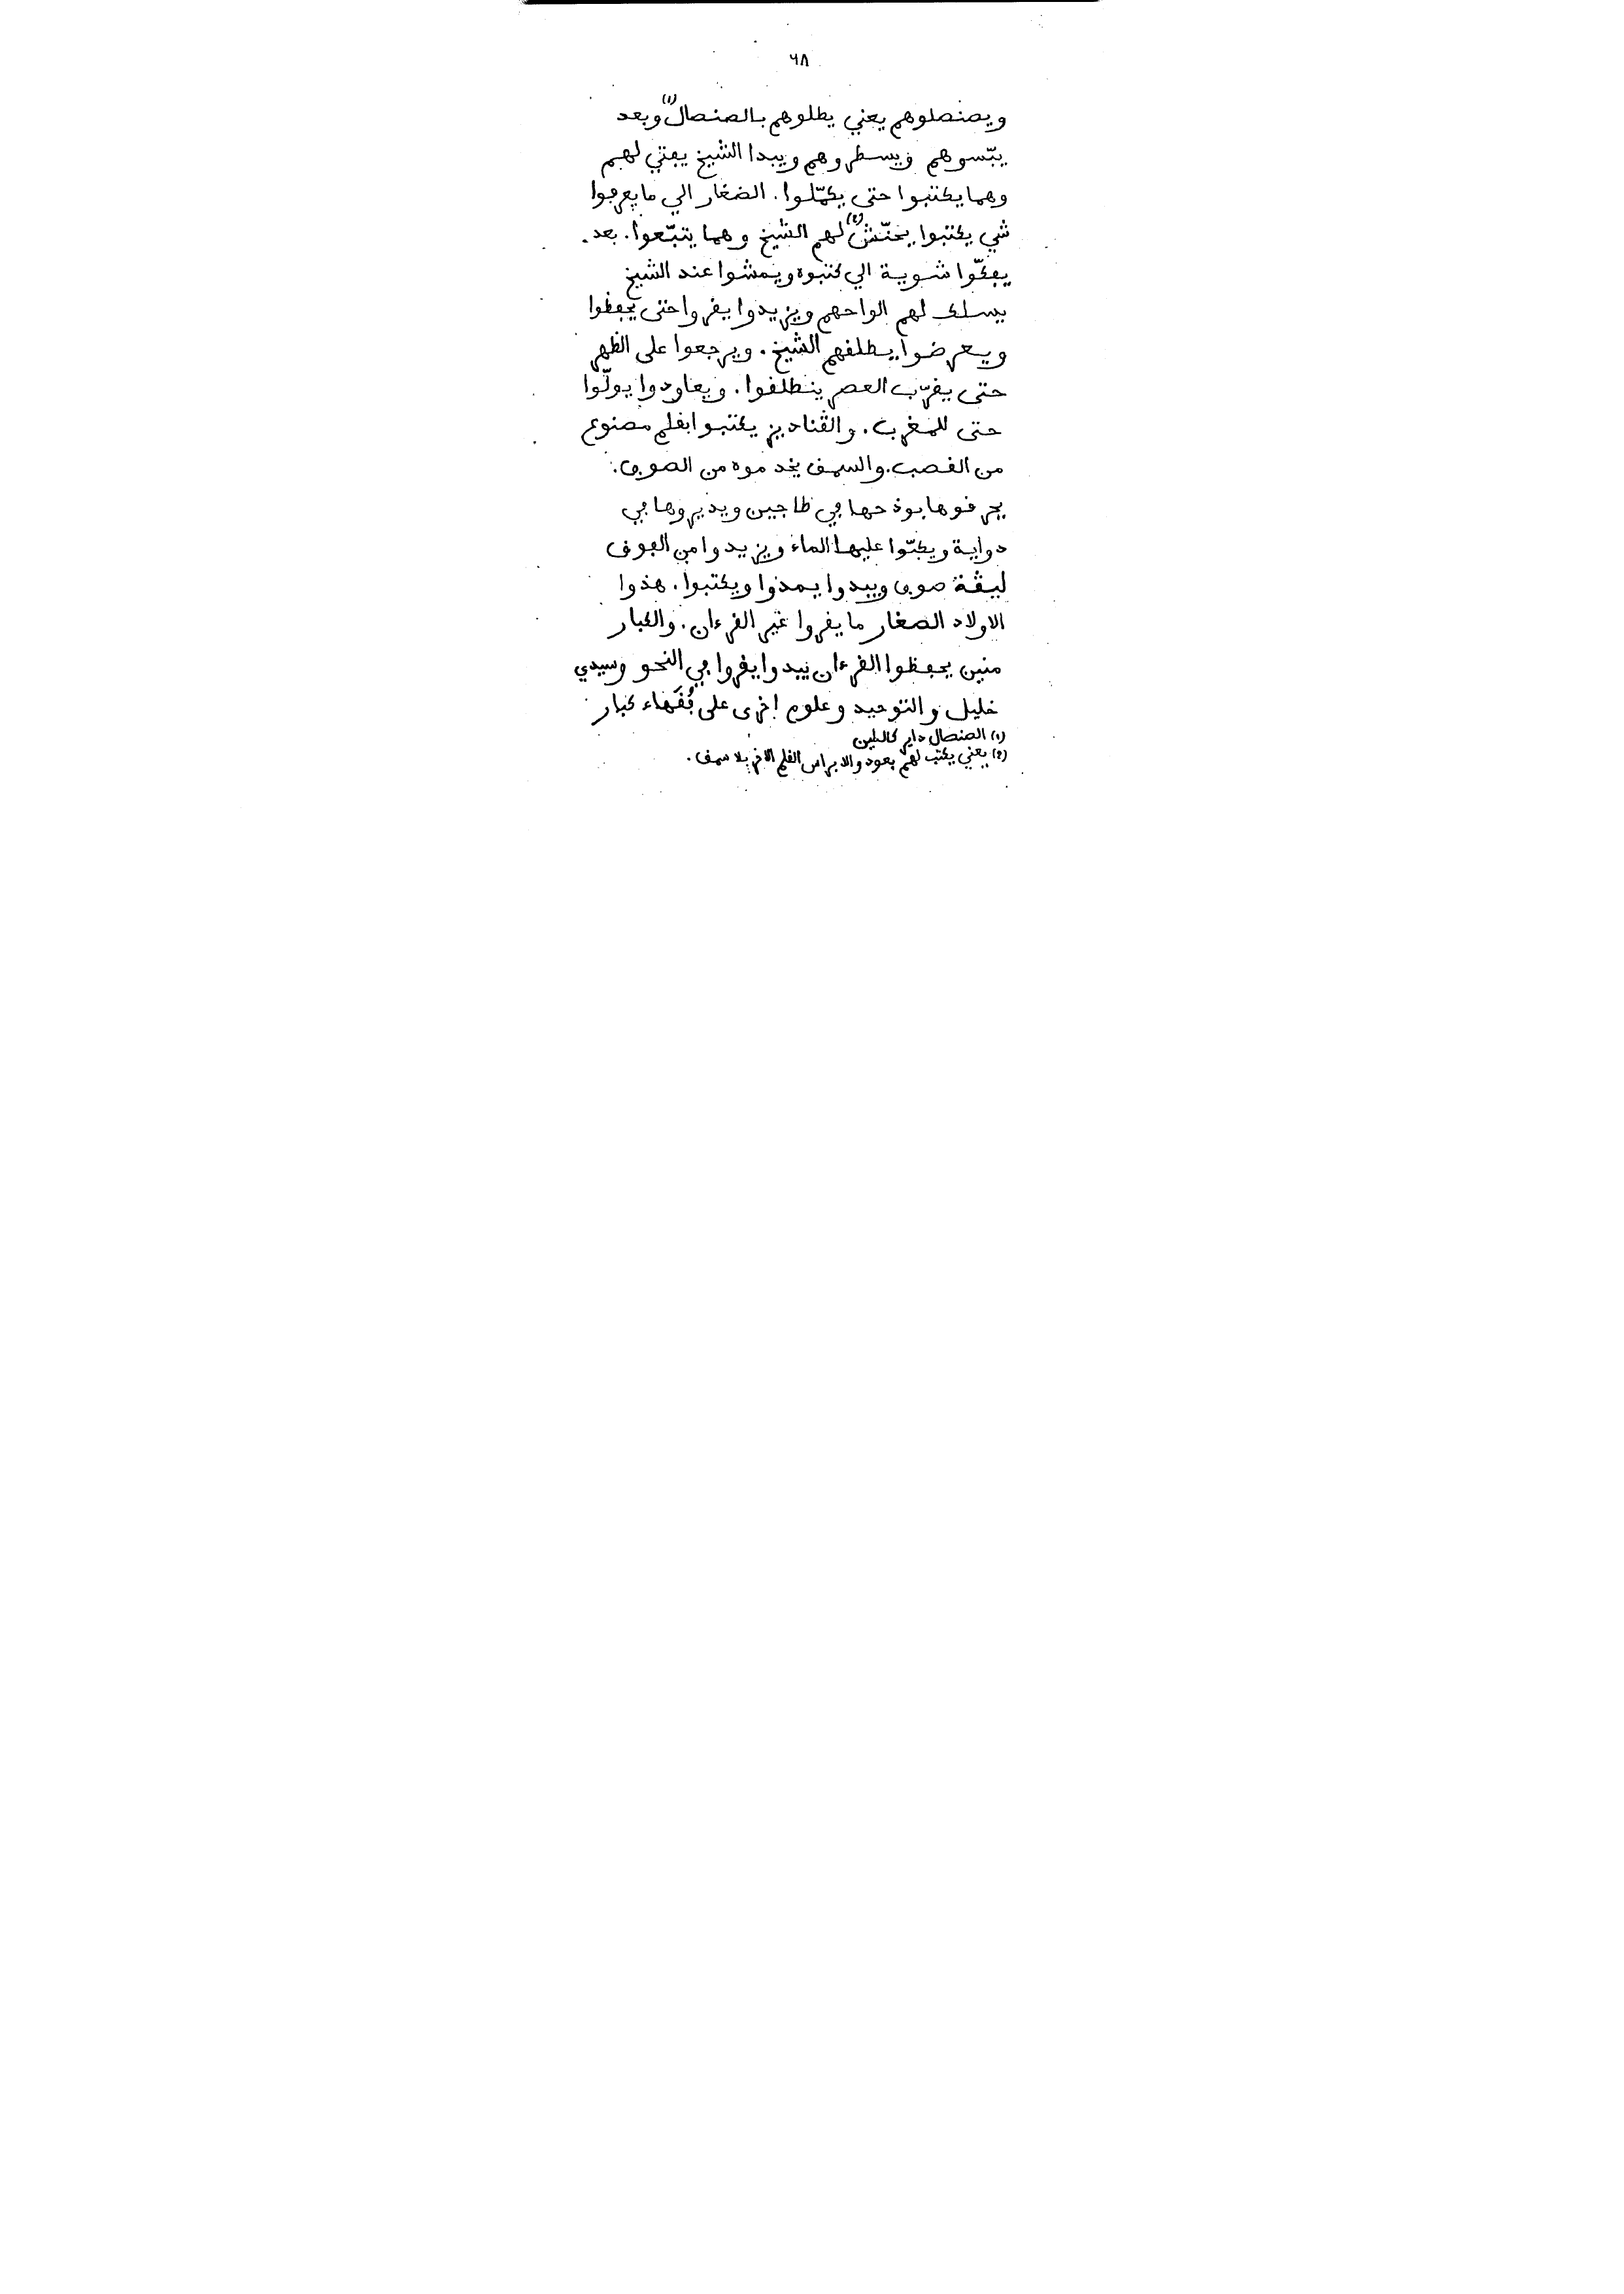 ٦٨
ويصنصلوهم يعني يطلوهم بالصنصال(١) وبعد
يبّسوهم ويسطروهم ويبدا الشيخ يڢتي لهم
وهما يكتبوا حتى يكمّلوا. الصغار الي ما يعرڢوا
شي يكتبوا يحنّش(٢) لهم الشيخ وهما يتبّعوا. بعد
يڢكّوا شوية الي كتبوه ويمشوا عند الشيخ
يسلك لهم الواحهم ويزيدوا يڧروا حتى يحڢظوا
ويعرضوا يطلڧهم الشيخ. ويرجعوا على الظهر
حتى يڧرّب العصر ينطلڧوا. ويعاودوا يولّوا
حتى للمغرب. والڨناديز يكتبوا بڧلم مصنوع
من الڧصب. والسمڧ يخدموه من الصوڢ.
يحرڧوها بوذحها ڢي طاجين ويديروها ڢي
دواية ويكبّوا عليها الماء ويزيدوا من الڢوڧ
ليڨة صوڢ ويبدوا يمدّوا ويكتبوا. هذوا
الاولاد الصغار ما يڧروا غير الڧرءان. والكبار
منين يحڢظوا الڧرءان يبدوا يڧروا ڢي النحو وسيدي
خليل والتوحيد وعلوم اخرى على ڢُڧَهاء كبار
(١) الصنصال داير كالطين
(٢) يعني يكتب لهم بعود والا براس الڧلم الاخر بلا سمڧ.